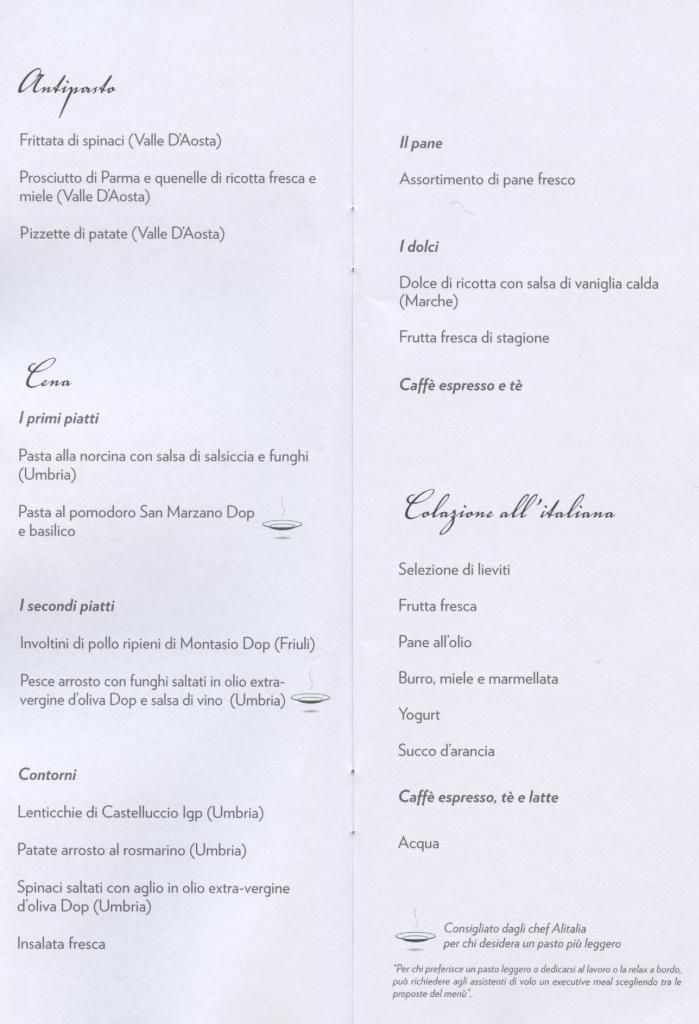 Antipasto
Frittata di spinaci (Valle D'Aosta)
Prosciutto di Parma e quenelle di ricotta fresca e
miele (Valle D'Aosta)
Pizzette di patate (Valle D'Aosta)
Cena
I primi piatti
Pasta alla norcina con salsa di salsiccia e funghi
(Umbria)
Pasta al pomodoro San Marzano Dop
e basilico
I secondi piatti
Involtini di pollo ripieni di Montasio Dop (Friuli)
Pesce arrosto con funghi saltati in olio extra-
vergine d'oliva Dop e salsa di vino (Umbria)
Contorni
Lenticchie di Castelluccio Igp (Umbria)
Patate arrosto al rosmarino (Umbria)
Spinaci saltati con aglio in olio extra-vergine
d'oliva Dop (Umbria)
Insalata fresca
Il pane
Assortimento di pane fresco
I dolci
Dolce di ricotta con salsa di vaniglia calda
(Marche)
Frutta fresca di stagione
Caffè espresso e tè
Colazione all'italiana
Selezione di lieviti
Frutta fresca
Pane all'olio
Burro, miele e marmellata
Yogurt
Succo d'arancia
Caffè espresso, tè e latte
Acqua
Consigliato dagli chef Alitalia
per chi desidera un pasto più leggero
"Per chi preferisce un pasto leggero o dedicarsi al lavoro o la relax a bordo,
può richiedere agli assistenti di volo un executive meal scegliendo tra le
proposte del menù".